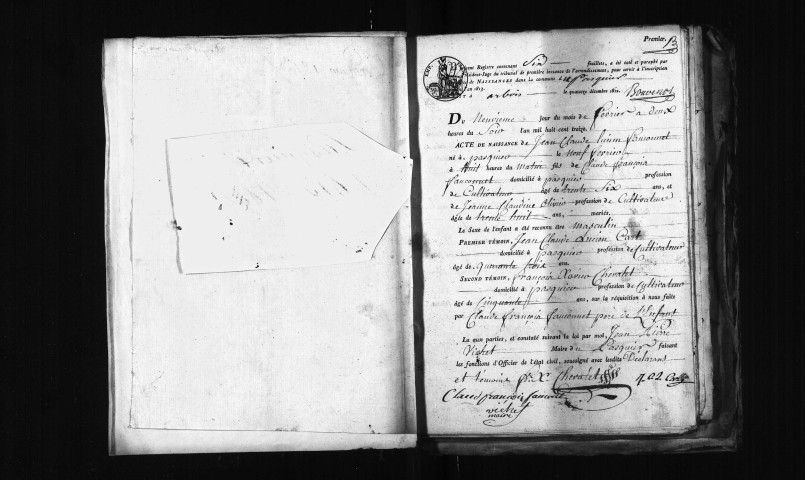 Premier.
Registre contenant Six feuillets, a été coté et paraphé par
Juge du tribunal de première instance de l'arrondissement, pour servir à l'inscription
de NAISSANCES dans la commune
an 1813.
à arbois le quatorze décembre 1812. Bouvenot
Du Neuvieme Jour du mois de fevrier a deux
heures du Soir l'an mil huit cent treize,
ACTE DE NAISSANCE de Jean Claude fauconnet
né à pasquier le neuf fevrier
à huit heures du matin fils de Claude françois
fauconnet domicilié à pasquier profession
de Cultivateur âgé de trente Six ans, et
de Jeanne Claudine profession de Cultivateur
âgée de trente huit ans, mariés.
Le Sexe de l'enfant a été reconnu être masculin
PREMIER TÉMOIN, Jean Claude Lucien Cart
domicilié à pasquier profession de Cultivateur
âgé de quarante trois ans.
SECOND TÉMOIN, françois Xavier Chevalet
domicilié à pasquier profession de Cultivateur
âgé de Cinquante ans, sur la réquisition à nous faite
par Claude françois fauconnet père de L'Enfant
La aux parties, et constaté suivant la loi par moi, Jean Pierre
Maire du Pasquier faisant
les fonctions d'Officier de l'état civil, soussigné avec lesdits Declarant
et témoins fx. Xr. Chevalet Cart
Claude françois fauconet
maire